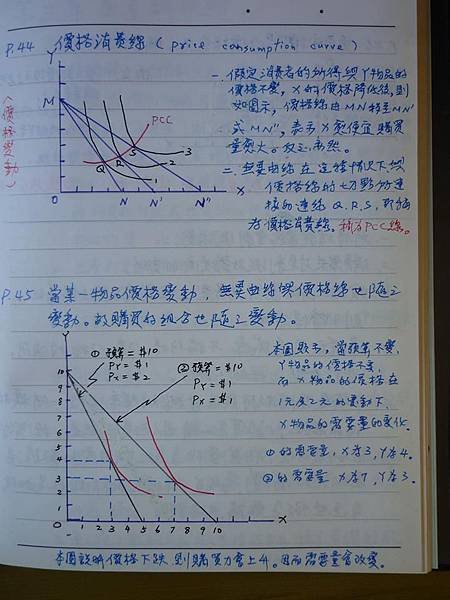 P.44 價格消費線 (price consumption curve)
(價格變動)
Y
M
PCC
S
Q
R
3
2
1
N N' N"
X
一、假定消費者的納得與Y物品的
價格不變,X的價格降低後,則
如圖示,價格線由MN移至MN'
或MN",表示X愈便宜購買
量愈大。反之亦然。
二、無異曲線在這種情況下,與
價格線的切點所連
接的連線Q.R.S,即稱
者價格消費線。稱為PCC線。
P.45 當某一物品價格變動,無異曲線與價格線也隨之
變動。故購買的組合也隨之變動。
Y
① 預算=$10
Py=$1
Px=$2
②預算=$10
Py=$1
Px=$1
10
9
8
7
6
5
4
3
2
1
0
1 2 3 4 5 6 7 8 9 10
X
本圖顯示,當預算不變、
Y物品的價格不變,
而X物品的價格在
1元及2元的變動下,
X物品的需要量的變化。
①的需要量,X為3,Y為4。
②的需要量 X為7,Y為3。
本圖說明價格下跌,則購買力會上升。因而需要量會改變。